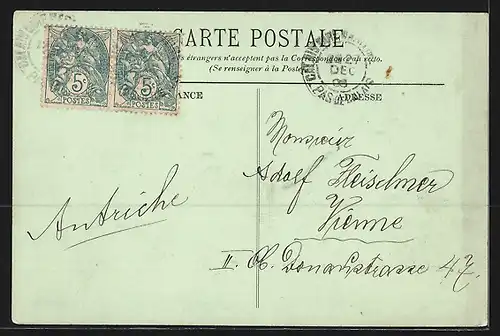 CARTE POSTALE
étrangers n'acceptent pas la Correspondance au recto.
(Se renseigner à la Poste)
ANCE
ADRESSE
5c 5c
POSTES POSTES
DEC
PAS-DE-CALAIS
Monsieur
Adolf Fleischner
Vienne
II. Ob. Donaustrasse 47.
Autriche